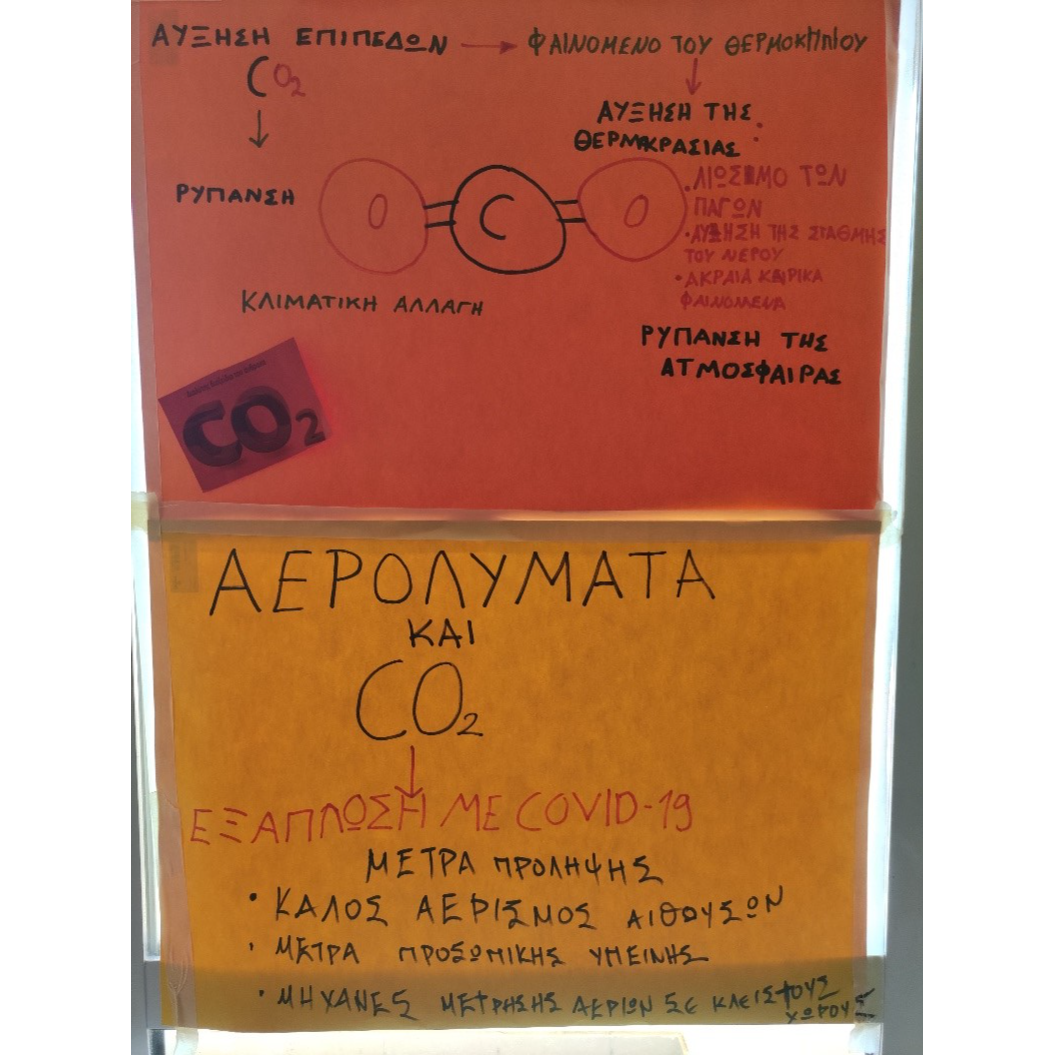 ΑΥΞΗΣΗ ΕΠΙΠΕΔΩΝ → ΦΑΙΝΟΜΕΝΟ ΤΟΥ ΘΕΡΜΟΚΗΠΙΟΥ
CO2
ΑΥΞΗΣΗ ΤΗΣ
ΘΕΡΜΟΚΡΑΣΙΑΣ
ΡΥΠΑΝΣΗ
O = C = O
• ΛΙΩΣΙΜΟ ΤΩΝ
ΠΑΓΩΝ
• ΑΥΞΗΣΗ ΤΗΣ ΣΤΑΘΜΗΣ
ΤΟΥ ΝΕΡΟΥ
• ΑΚΡΑΙΑ ΚΑΙΡΙΚΑ
ΦΑΙΝΟΜΕΝΑ
ΚΛΙΜΑΤΙΚΗ ΑΛΛΑΓΗ
ΡΥΠΑΝΣΗ ΤΗΣ
ΑΤΜΟΣΦΑΙΡΑΣ
CO2
ΑΕΡΟΛΥΜΑΤΑ
ΚΑΙ
CO2
ΕΞΑΠΛΩΣΗ ΜΕ COVID-19
ΜΕΤΡΑ ΠΡΟΛΗΨΗΣ
• ΚΑΛΟΣ ΑΕΡΙΣΜΟΣ ΑΙΘΟΥΣΩΝ
• ΜΕΤΡΑ ΠΡΟΣΩΠΙΚΗΣ ΥΓΕΙΝΗΣ
• ΜΗΧΑΝΕΣ ΜΕΤΡΗΣΗΣ ΑΕΡΙΩΝ ΣΕ ΚΛΕΙΣΤΟΥΣ
ΧΩΡΟΥΣ